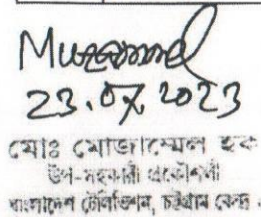 Muzammel
23.07.2023
মোঃ মোজাম্মেল হক
উপ-সহকারী প্রকৌশলী
বাংলাদেশ টেলিভিশন, চট্টগ্রাম কেন্দ্র